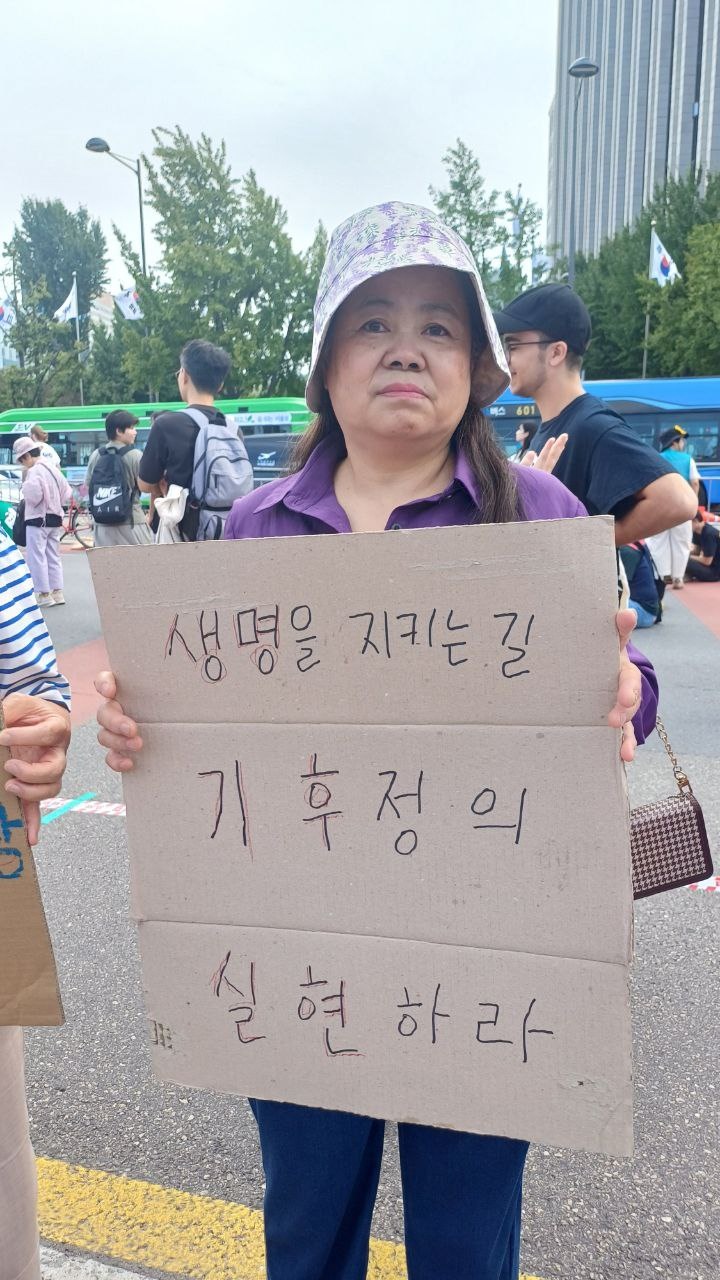 생명을 지키는 길
기후정의
실현하라
버스 601
NIKE
AIR